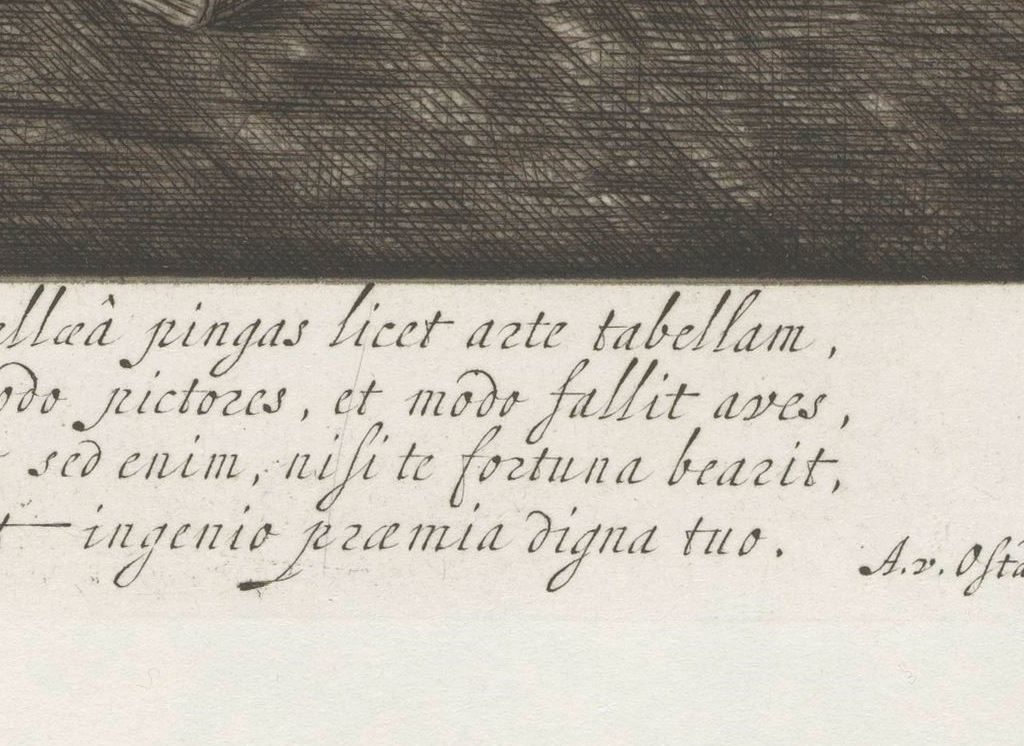 ellæâ pingas licet arte tabellam,
odo pictores, et modo fallit aves,
sed enim, nisi te fortuna bearit,
t ingenio præmia digna tuo.
A.v. Osta